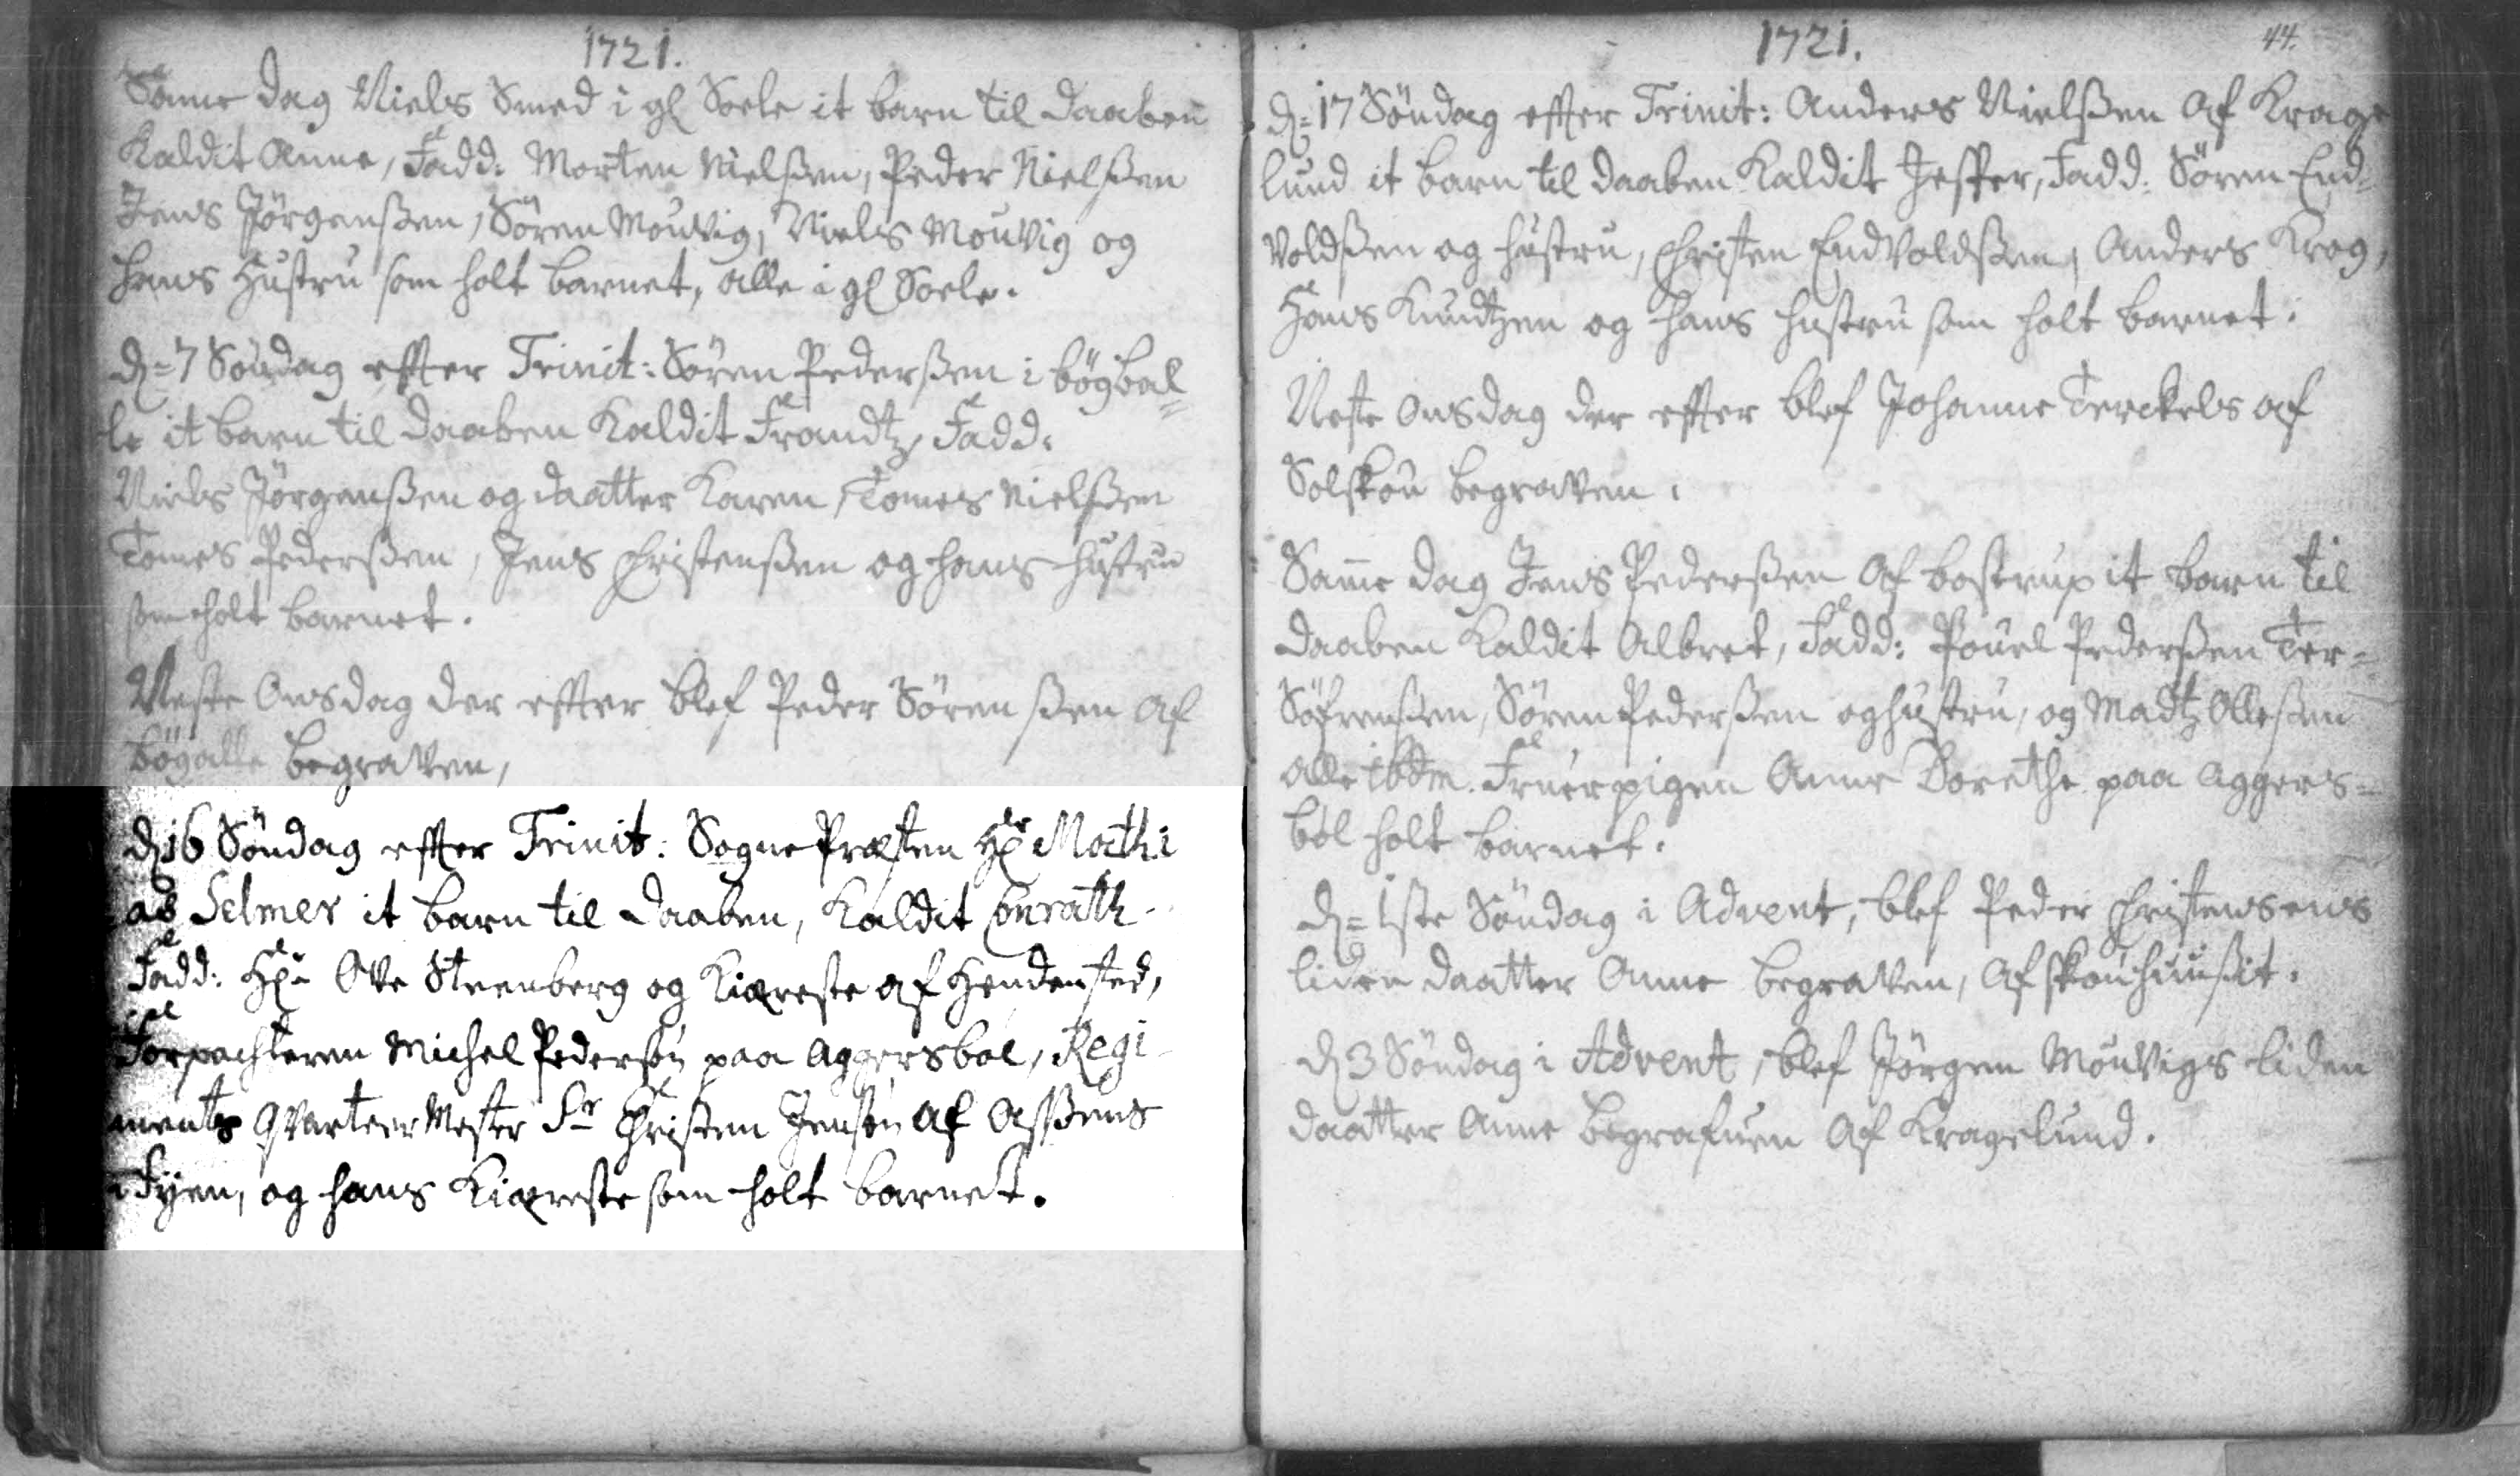 1721.
Same dag Niels Smed i gl Soele it barn til daaben
Kaldit Anne, Fadd: Morten Nielßen, Peder Nielßen
Jens Jörgenßen, Sören Mouvig, Niels Mouvig og
hans Hustru som holt barnet, alle i gl Soele.
d= 7 Söndag effter Trinit: Sören Pederßen i bögbal=
le it barn til daaben Kaldit Frandtz, Fadd:
Niels Jörgenßen og daatter Karen, Tomes Nielßen
Tomes Pederßen, Jens Christenßen og hans hustru
som holt barnet.
Neste Onsdag der effter blef Peder Sörenßen af
bögalle begraven,
d 16 Söndag effter Trinit: Sogne Præsten Hr Mathi
as Selmer it barn til daaben, Kaldit Conrath
Fadd: Hr Ove Steenberg og Kiæreste af Hendensted,
Forpachteren Michel Pedersön paa Aggersbol, Regi
ments Qvarteer Mester Sr Christen Jensön af Assens
i Fyen, og hans Kiæreste som holt barnet.
1721.
44.
d= 17 Söndag effter Trinit: Anders Nielßen af Krage
lund it barn til daaben Kaldit Jesper, Fadd: Sören End=
voldßen og hustru, Christen Endvoldßen, Anders Krog,
Hans Knudtzen og hans hustru som holt barnet.
Neste Onsdag der effter blef Johanne Terckels af
Solskou begraven.
Same dag Jens Pederßen af bostrup it barn til
daaben Kaldit Albret, Fadd: Pouel Pederßen Ter=
Söfrenßen, Sören Pederßen og hustru, og Madtz Olleßen
alle ibdm. Fruerpigen Anne Dorethe paa Aggers=
bol holt barnet.
d= 1ste Söndag i Advent, blef Peder Christensens
liden daatter Anne begraven, af skouhuußit.
d 3 Söndag i Advent, blef Jörgen Mouvigs liden
daatter Anne begrafuen af Kragelund.